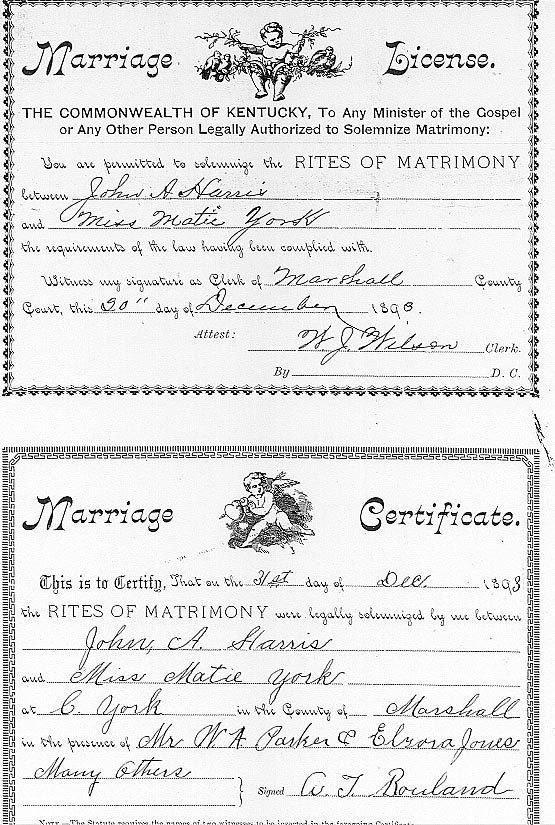 Marriage License.
THE COMMONWEALTH OF KENTUCKY, To Any Minister of the Gospel
or Any Other Person Legally Authorized to Solemnize Matrimony:
You are permitted to solemnize the RITES OF MATRIMONY
between John A Harris
and Miss Matie York
the requirements of the law having been complied with.
Witness my signature as Clerk of Marshall County
Court, this 30" day of December 1893.
Attest: W. J. Wilson Clerk.
By D. C.
Marriage Certificate.
This is to Certify, That on the 31st day of Dec. 1893
the RITES OF MATRIMONY were legally solemnized by me between
John, A. Harris
and Miss Matie York
at C. York in the County of Marshall
in the presence of Mr W A Parker & Elzora Jones
Many Others Signed W. T. Rouland
NOTE.—The Statute requires the names of two witnesses to be inserted in the foregoing Certificate.